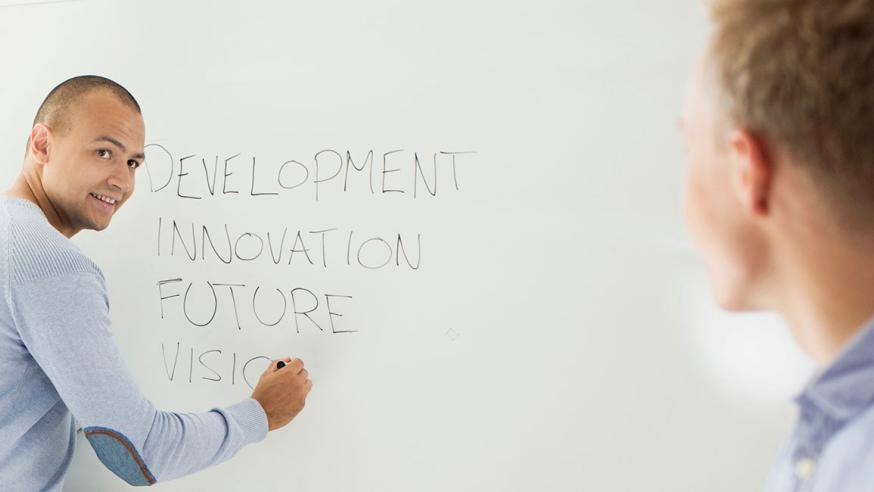 DEVELOPMENT
INNOVATION
FUTURE
VISIO